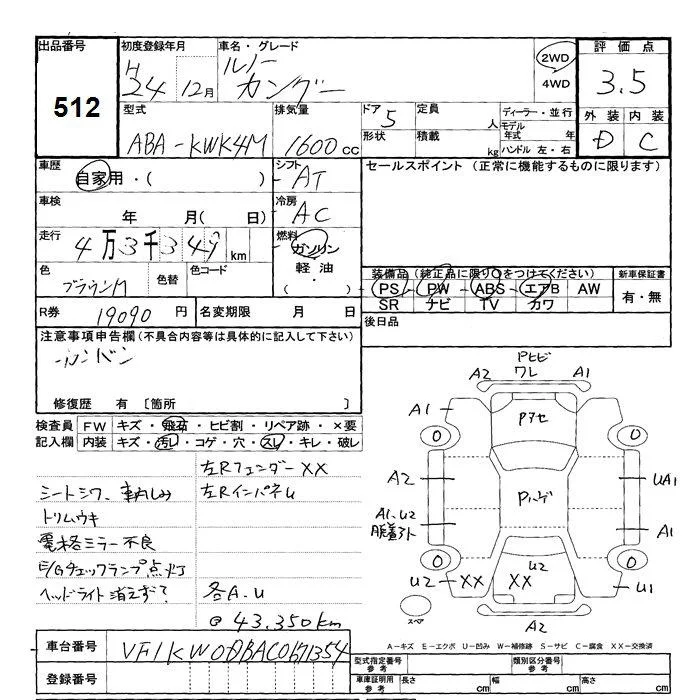 出品番号
512
初度登録年月
H
24 12月
車名・グレード
ルノー
カングー
2WD
4WD
評価点
3.5
外装 内装
D C
型式
ABA-KWK4M
排気量
1600cc
ドア 5
形状
定員 人
積載 kg
ディーラー・並行
モデル
年式 年
ハンドル 左・右
車歴
自家用・( )
シフト
AT
セールスポイント (正常に機能するものに限ります)
車検
年 月( 日)
冷房
AC
走行
4万3千349km
燃料
ガソリン
軽油・
( )
色
ブラウンM
色替
色コード
装備品(純正品に限り○をつけてください)
PS・PW・ABS・エアB AW
SR ナビ TV カワ
新車保証書
有・無
R券 19090円
名変期限 月 日
後日品
注意事項申告欄(不具合内容等は具体的に記入して下さい)
修復歴 有 〔箇所 〕
検査員
記入欄
FW キズ・飛石・ヒビ割・リペア跡・×要
内装 キズ・汚レ・コゲ・穴・スレ・キレ・破レ
左Rフェンダー XX
シートシワ、車内しみ
左Rインパネu
トリムウキ
電格ミラー不良
E/Gチェックランプ点灯
ヘッドライト消えずて?
各A.U
@43.350km
Pヒビ
ワレ
A2
A1
A1
Pアセ
O
O
A2
UA1
Pハゲ
A1.U2
A1
O
O
U2
XX
U2
XX
U1
スペア
A2
A-キズ E-エクボ U-凹み W-補修跡 S-サビ C-腐食 XX-交換済
車台番号
VF1KW0BBAC0671354
登録番号
型式指定番号
参考
類別区分番号
参考
車庫証明用
参考
長さ cm
幅 cm
高さ cm